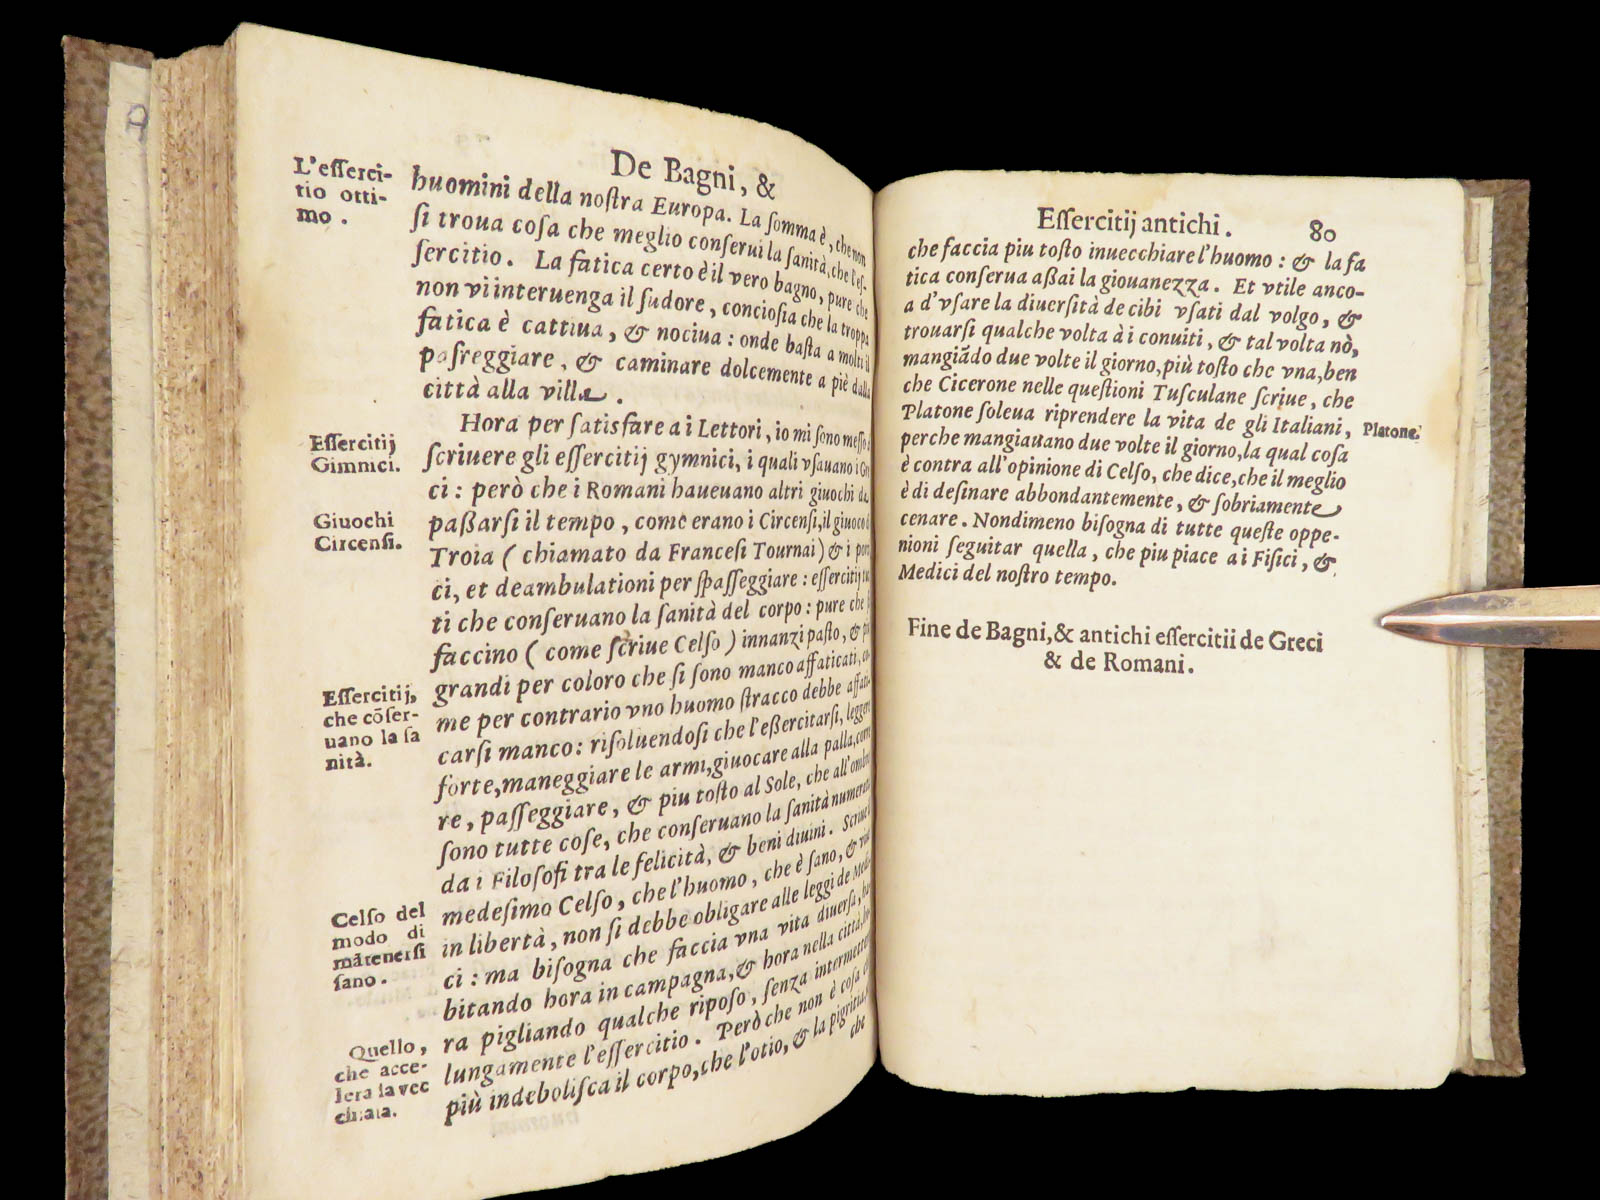 De Bagni, &
L'esserci-
tio otti-
mo.
huomini della nostra Europa. La somma è, che non
si troua cosa che meglio conserui la sanità, che l'es-
sercitio. La fatica certo è il vero bagno, pure che
non vi interuenga il sudore, conciosia che la troppa
fatica è cattiua, & nociua: onde basta a molti il
pasreggiare, & caminare dolcemente a piè dalla
città alla villa.
Essercitij
Gimnici.
Hora per satisfare a i Lettori, io mi sono messo a
scriuere gli essercitij gymnici, i quali vsauano i Gre
ci: però che i Romani haueuano altri giuochi da
Giuochi
Circensi.
passarsi il tempo, come erano i Circensi, il giuoco di
Troia (chiamato da Francesi Tournai) & i
ci, et deambulationi per spasseggiare: essercitij tut
ti che conseruano la sanità del corpo: pure che si
faccino (come scriue Celso) innanzi pasto, & piu
Essercitij,
che cõser-
uano la sa
nità.
grandi per coloro che si sono manco affaticati, co-
me per contrario vno huomo stracco debbe affati-
carsi manco: risoluendosi che l'essercitarsi, leggere
forte, maneggiare le armi, giuocare alla palla, corre
re, passeggiare, & piu tosto al Sole, che all'ombra
sono tutte cose, che conseruano la sanità numerata
da i Filosofi tra le felicità, & beni diuini. Scriue il
Celso del
modo di
mãtenersi
sano.
medesimo Celso, che l'huomo, che è sano, & viue
in libertà, non si debbe obligare alle leggi de Medi-
ci: ma bisogna che faccia vna vita diuersa, ha-
bitando hora in campagna, & hora nella città, ho-
ra pigliando qualche riposo, senza intermettere
Quello,
che acce-
lera la vec
chiaia.
lungamente l'essercitio. Però che non è cosa che
più indebolisca il corpo, che l'otio, & la pigritia,
che
Essercitij antichi. 80
che faccia piu tosto inuecchiare l'huomo: & la fa
tica conserua assai la giouanezza. Et vtile anco-
a d'vsare la diuersità de cibi vsati dal volgo, &
trouarsi qualche volta à i conuiti, & tal volta nò,
mangiãdo due volte il giorno, più tosto che vna, ben
che Cicerone nelle questioni Tusculane scriue, che
Platone soleua riprendere la vita de gli Italiani,
Platone.
perche mangiauano due volte il giorno, la qual cosa
è contra all'opinione di Celso, che dice, che il meglio
è di desinare abbondantemente, & sobriamente
cenare. Nondimeno bisogna di tutte queste oppe-
nioni seguitar quella, che piu piace a i Fisici, &
Medici del nostro tempo.
Fine de Bagni, & antichi essercitii de Greci
& de Romani.